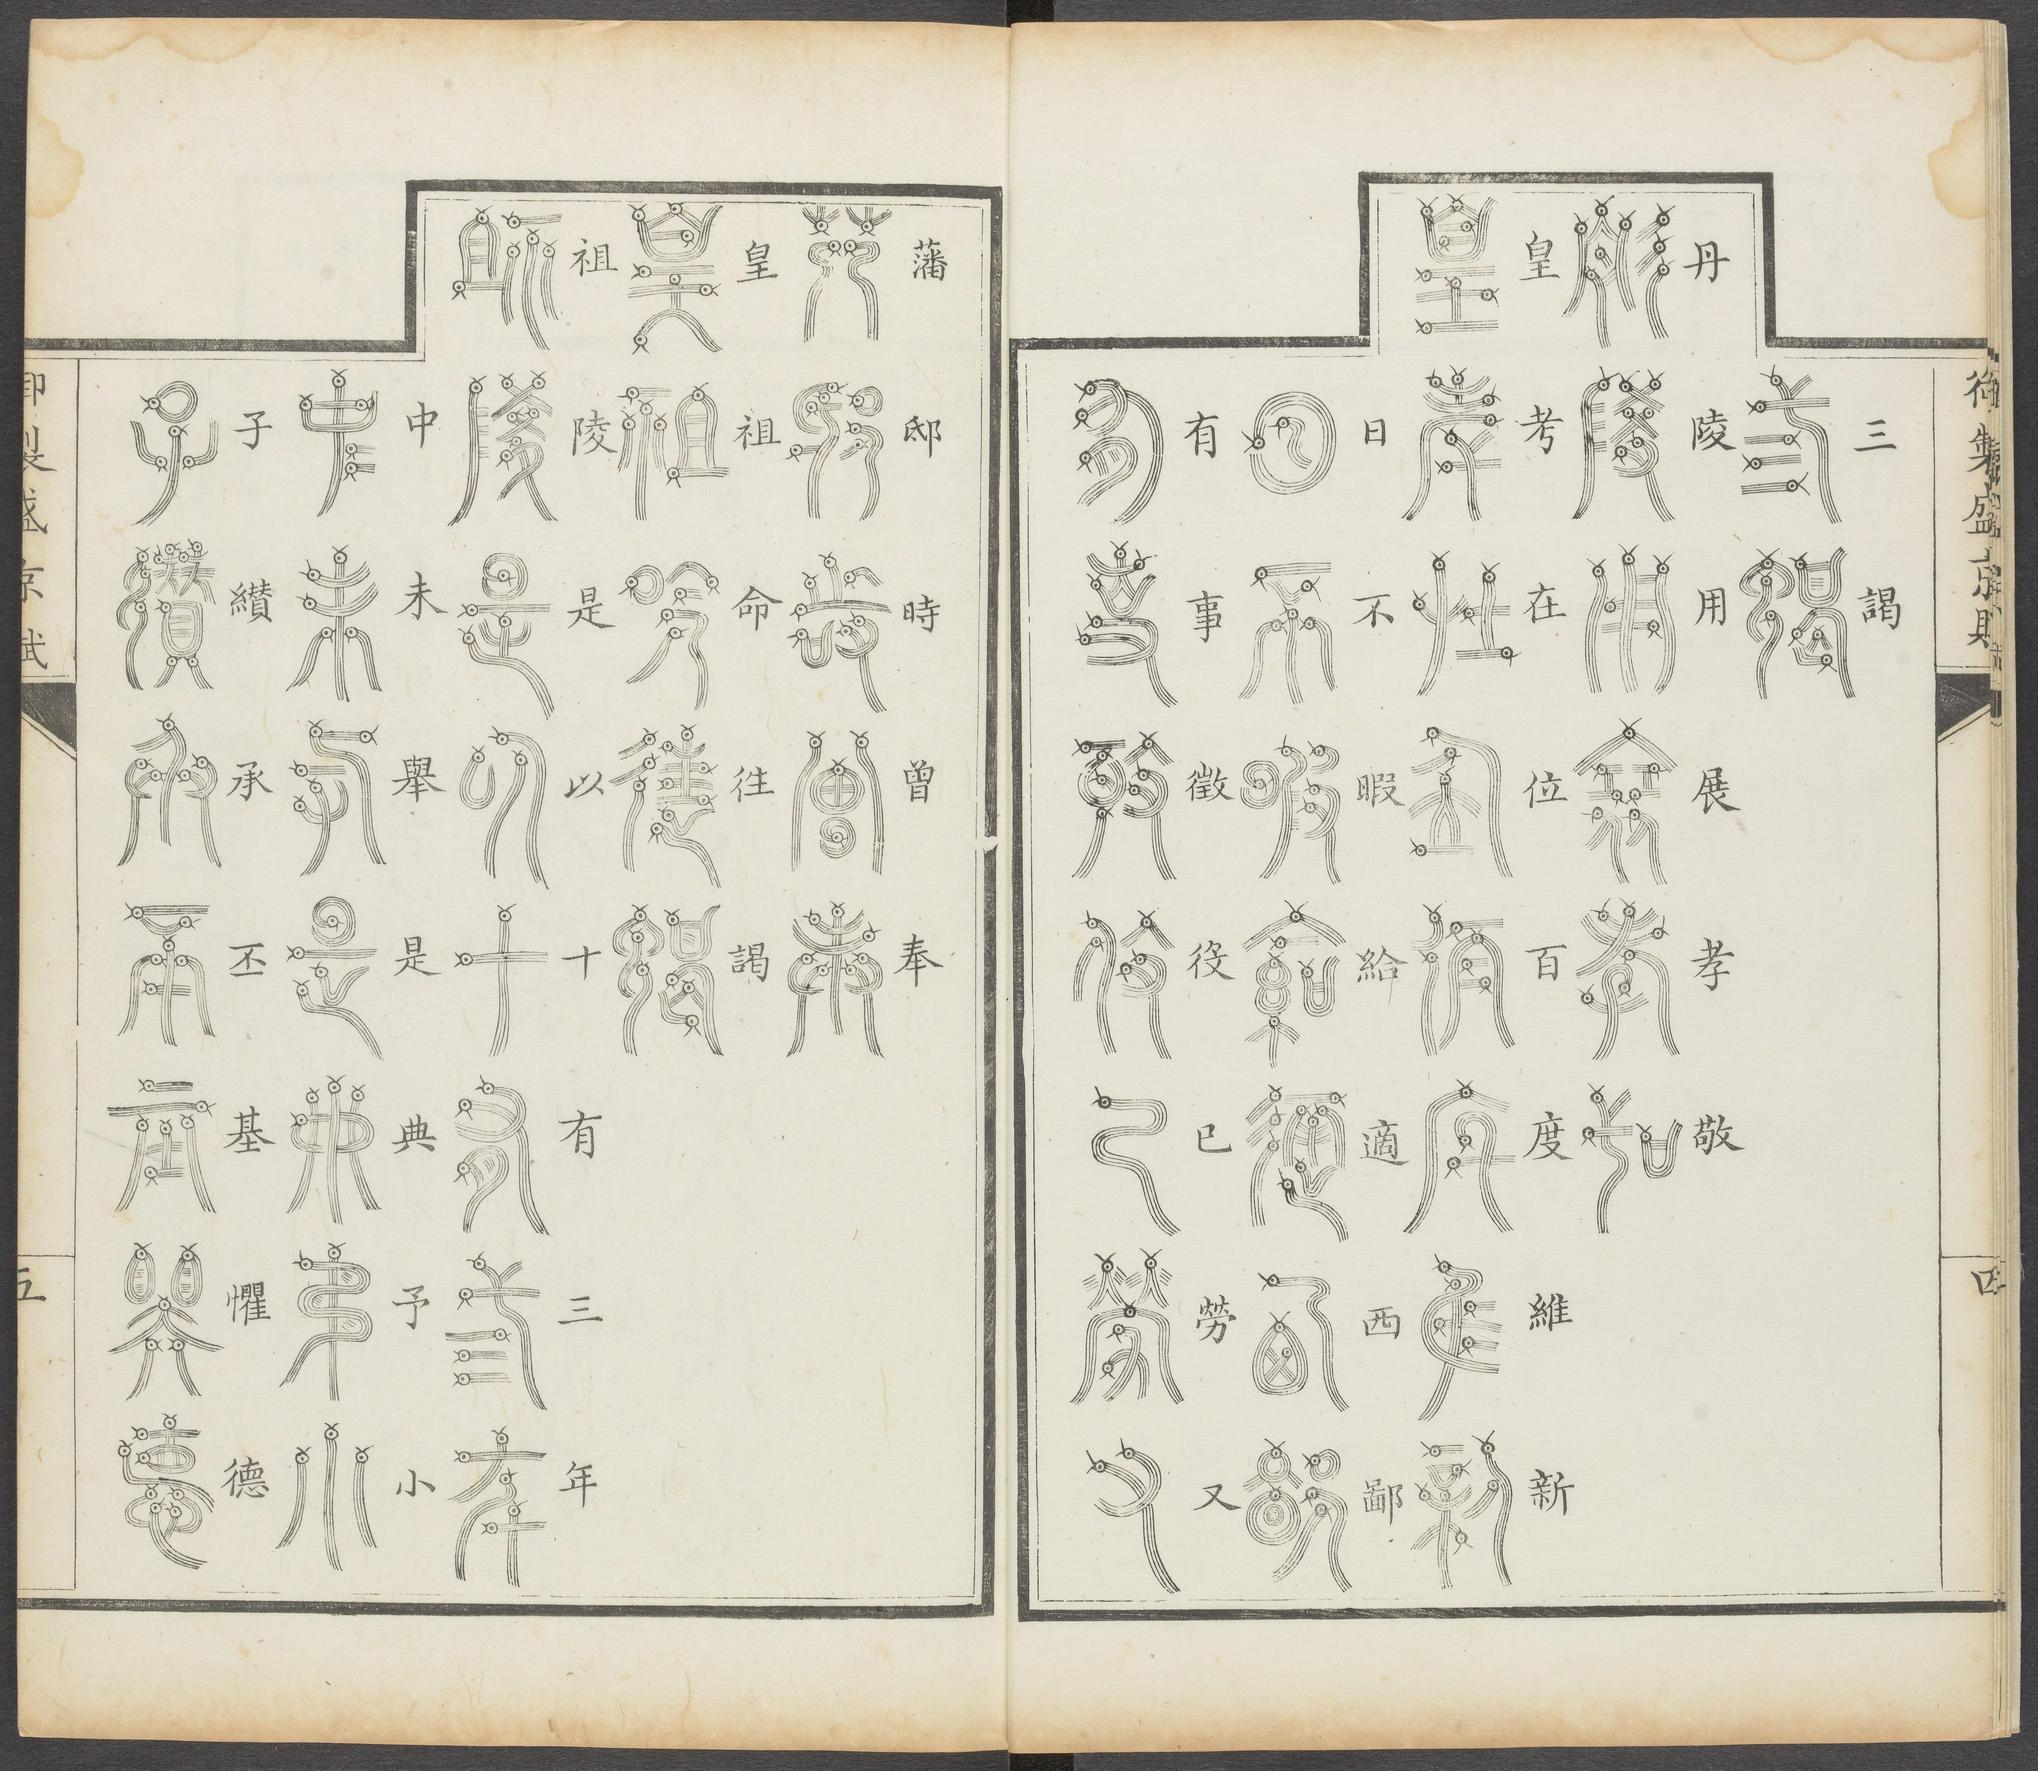 御製盛京賦
四
三謁
丹陵用展孝敬
皇考在位百度維新
日不暇給適西鄙
有事徵役已勞又
藩邸時曾奉
皇祖命往謁
祖陵是以十有三年
中未舉是典予小
子纘承丕基懼德
御製盛京賦
五